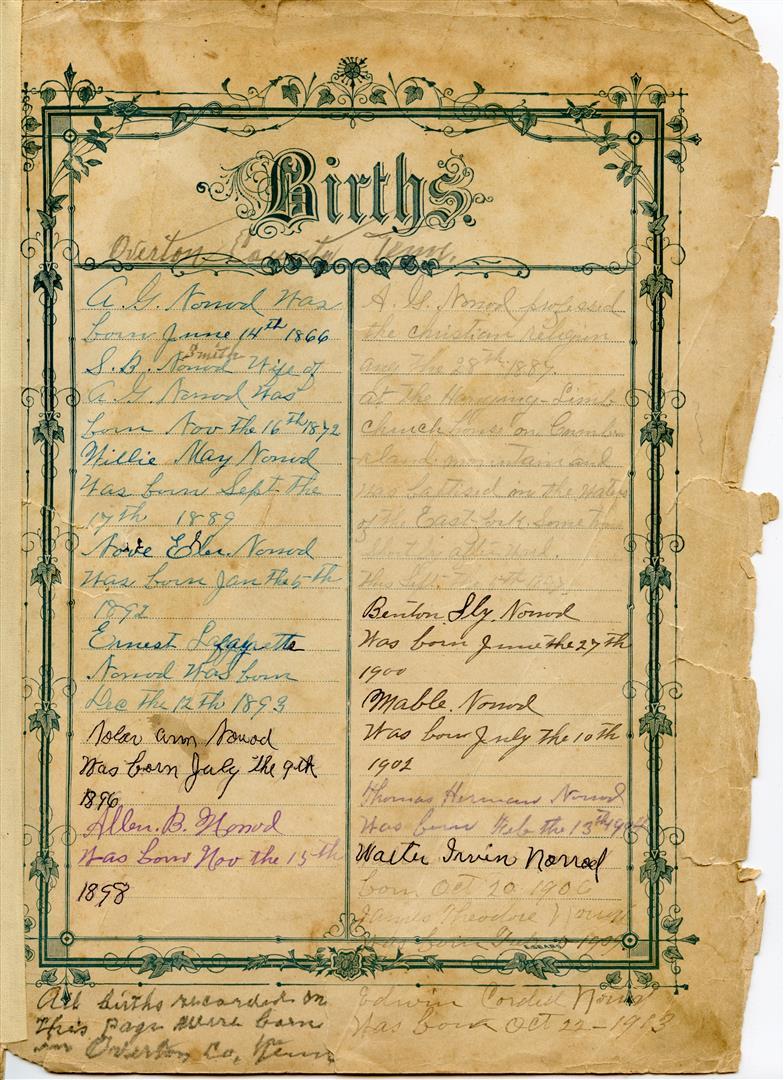 Births.
Overton County Tenn.
A. G. Norrod was
born June 14th 1866
Smith
S. B. Norrod Wife of
A G Norrod was
born Nov the 16th 1872
Willie May Norrod
Was born Sept the
17th 1889
Norrod
Was born Jan the 5th
1892
Ernest Lafayette
Norrod Was born
Dec the 12th 1893
ann Norrod
Was born July the 9th
1896
Allen. B. Norrod
Was born Nov the 15th
1898
All births recorded on
this page were born
in Overton Co, Tenn
A. G. Norrod professed
the christian religion
aug the 28th 1887
at the Hanging-Limb
church house on Cumber
land mountain and
was baptised in the waters
of the East fork some time
afterward.
this Sept the
Benton Sly. Norrod
Was born June the 27th
1900
Mable. Norrod
Was born July the 10th
1902
Thomas Herman Norrod
Was born Feb the 13th 1904
Walter Irvin Norrod
born Oct 20 1906
James Theodore Norrod
Was born
Edwin Cordell Norrod
Was born Oct 22-1913